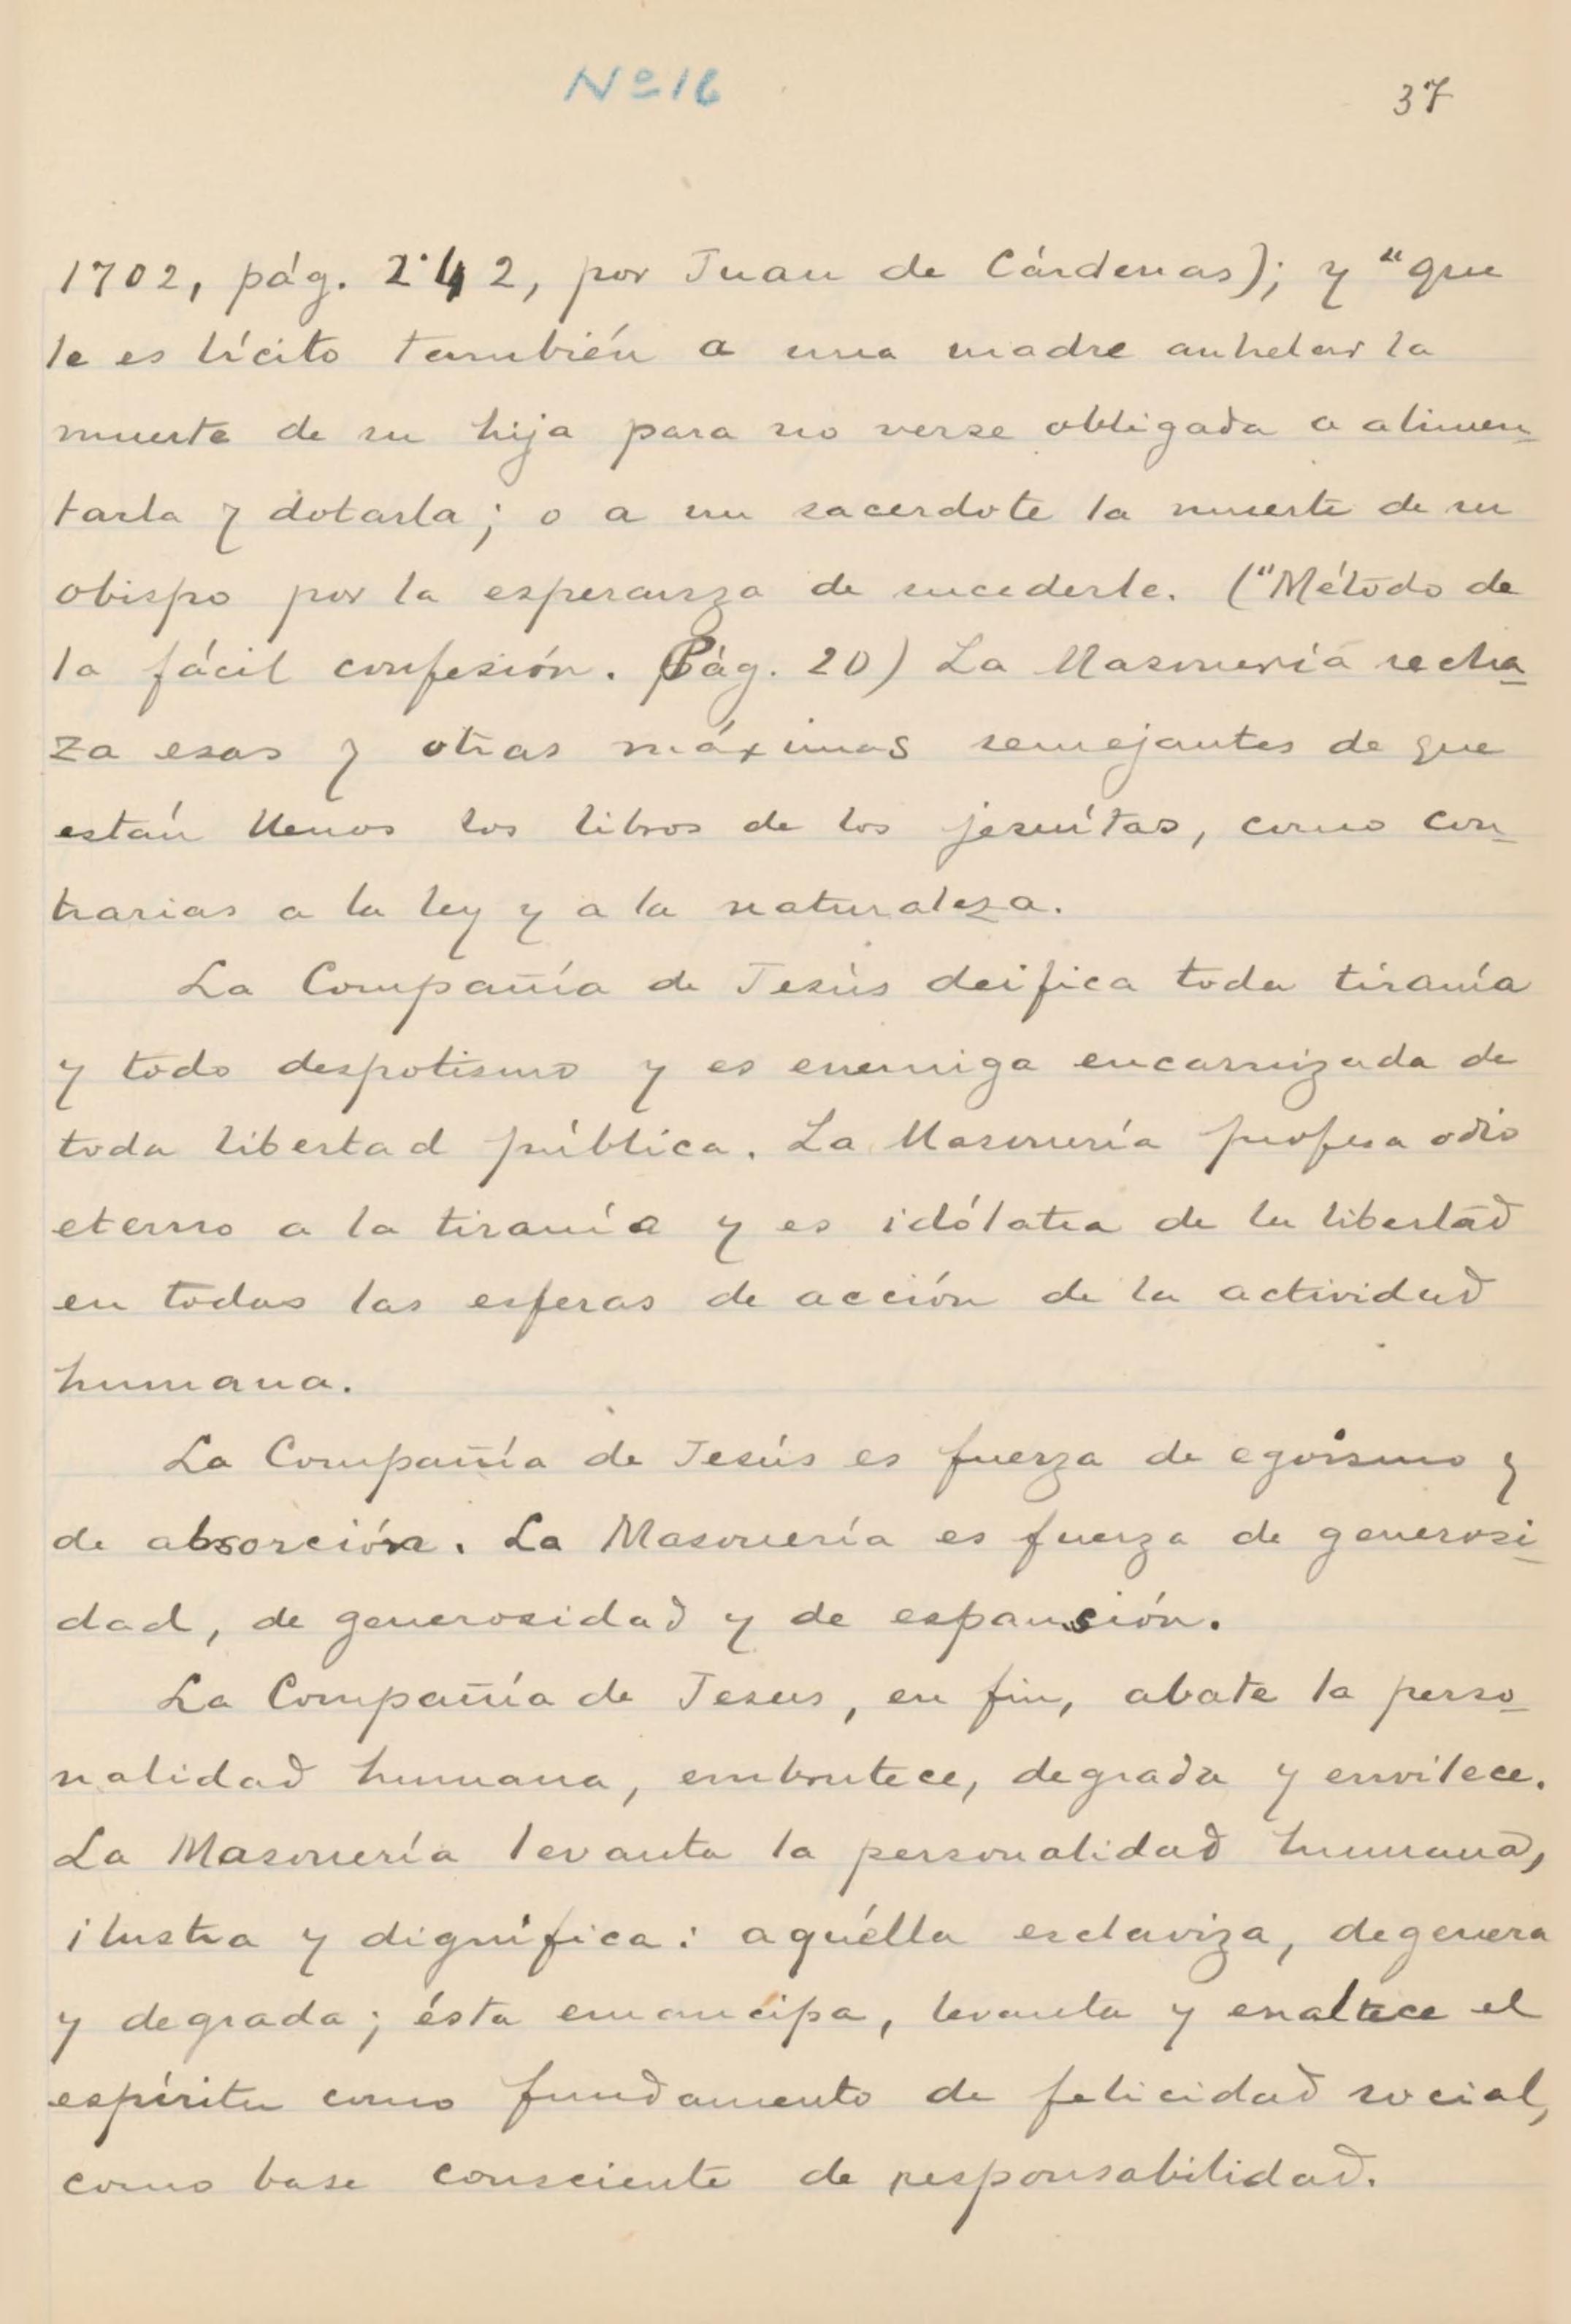 Nº 16
37
1702, pág. 242, por Juan de Cárdenas); y "que
le es lícito también a una madre anhelar la
muerte de su hija para no verse obligada a alimen-
tarla y dotarla; o a un sacerdote la muerte de su
obispo por la esperanza de sucederle. ("Método de
la fácil confesión. Pág. 20) La Masonería recha-
za esas y otras máximas semejantes de que
están llenos los libros de los jesuítas, como con-
trarias a la ley y a la naturaleza.
La Compañía de Jesús deifica toda tiranía
y todo despotismo y es enemiga encarnizada de
toda libertad pública. La Masonería profesa odio
eterno a la tiranía y es idólatra de la libertad
en todas las esferas de acción de la actividad
humana.
La Compañía de Jesús es fuerza de egoismo y
de absorción. La Masonería es fuerza de generosi-
dad, de generosidad y de espansión.
La Compañía de Jesus, en fin, abate la perso-
nalidad humana, embrutece, degrada y envilece.
La Masonería levanta la personalidad humana,
ilustra y dignifica: aquélla esclaviza, degenera
y degrada; ésta emancipa, levanta y enaltece el
espíritu como fundamento de felicidad social,
como base consciente de responsabilidad.